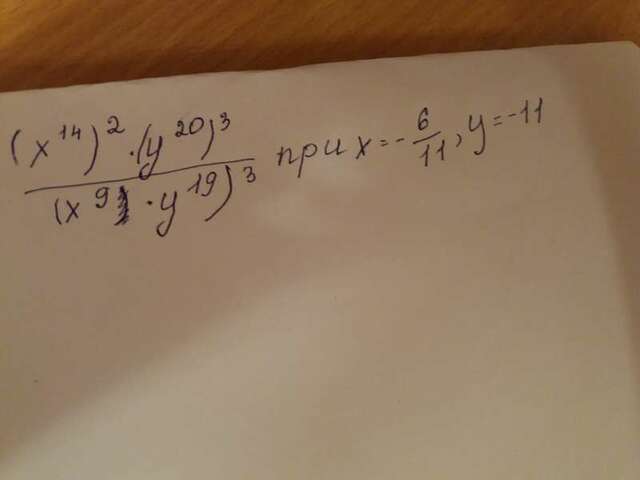 (x^14)^2 · (y^20)^3 / (x^9 · y^19)^3 при x = -6/11, y = -11